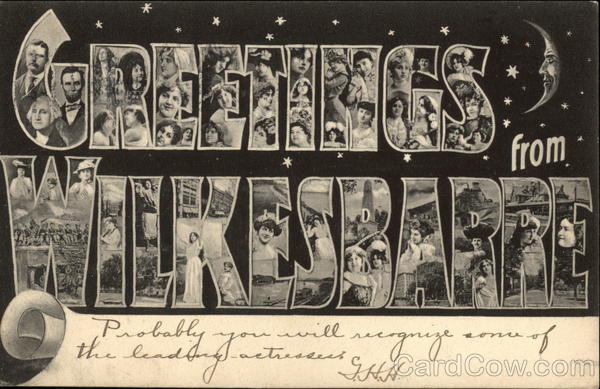 GREETINGS
from
WILKESBARRE
Probably you will recognize some of
the leading actresses
G.H.H.
CardCow.com